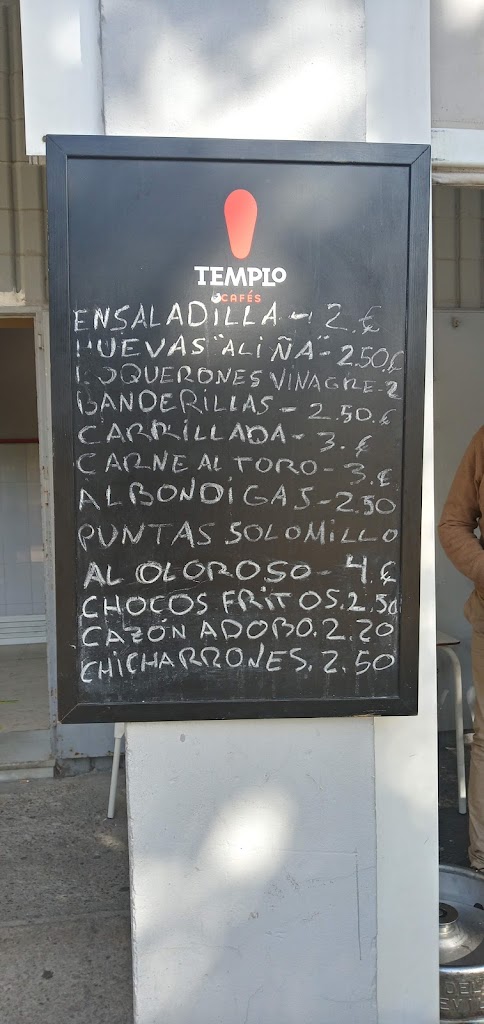 TEMPLO
CAFÉS
ENSALADILLA - 2.€
HUEVAS "ALIÑA" - 2.50.€
BOQUERONES VINAGRE - 2
BANDERILLAS - 2.50.€
CARRILLADA - 3.€
CARNE AL TORO - 3.€
ALBONDIGAS - 2.50
PUNTAS SOLOMILLO
AL OLOROSO - 4.€
CHOCOS FRITOS. 2.50
CAZÓN ADOBO. 2.20
CHICHARRONES. 2.50
DEL